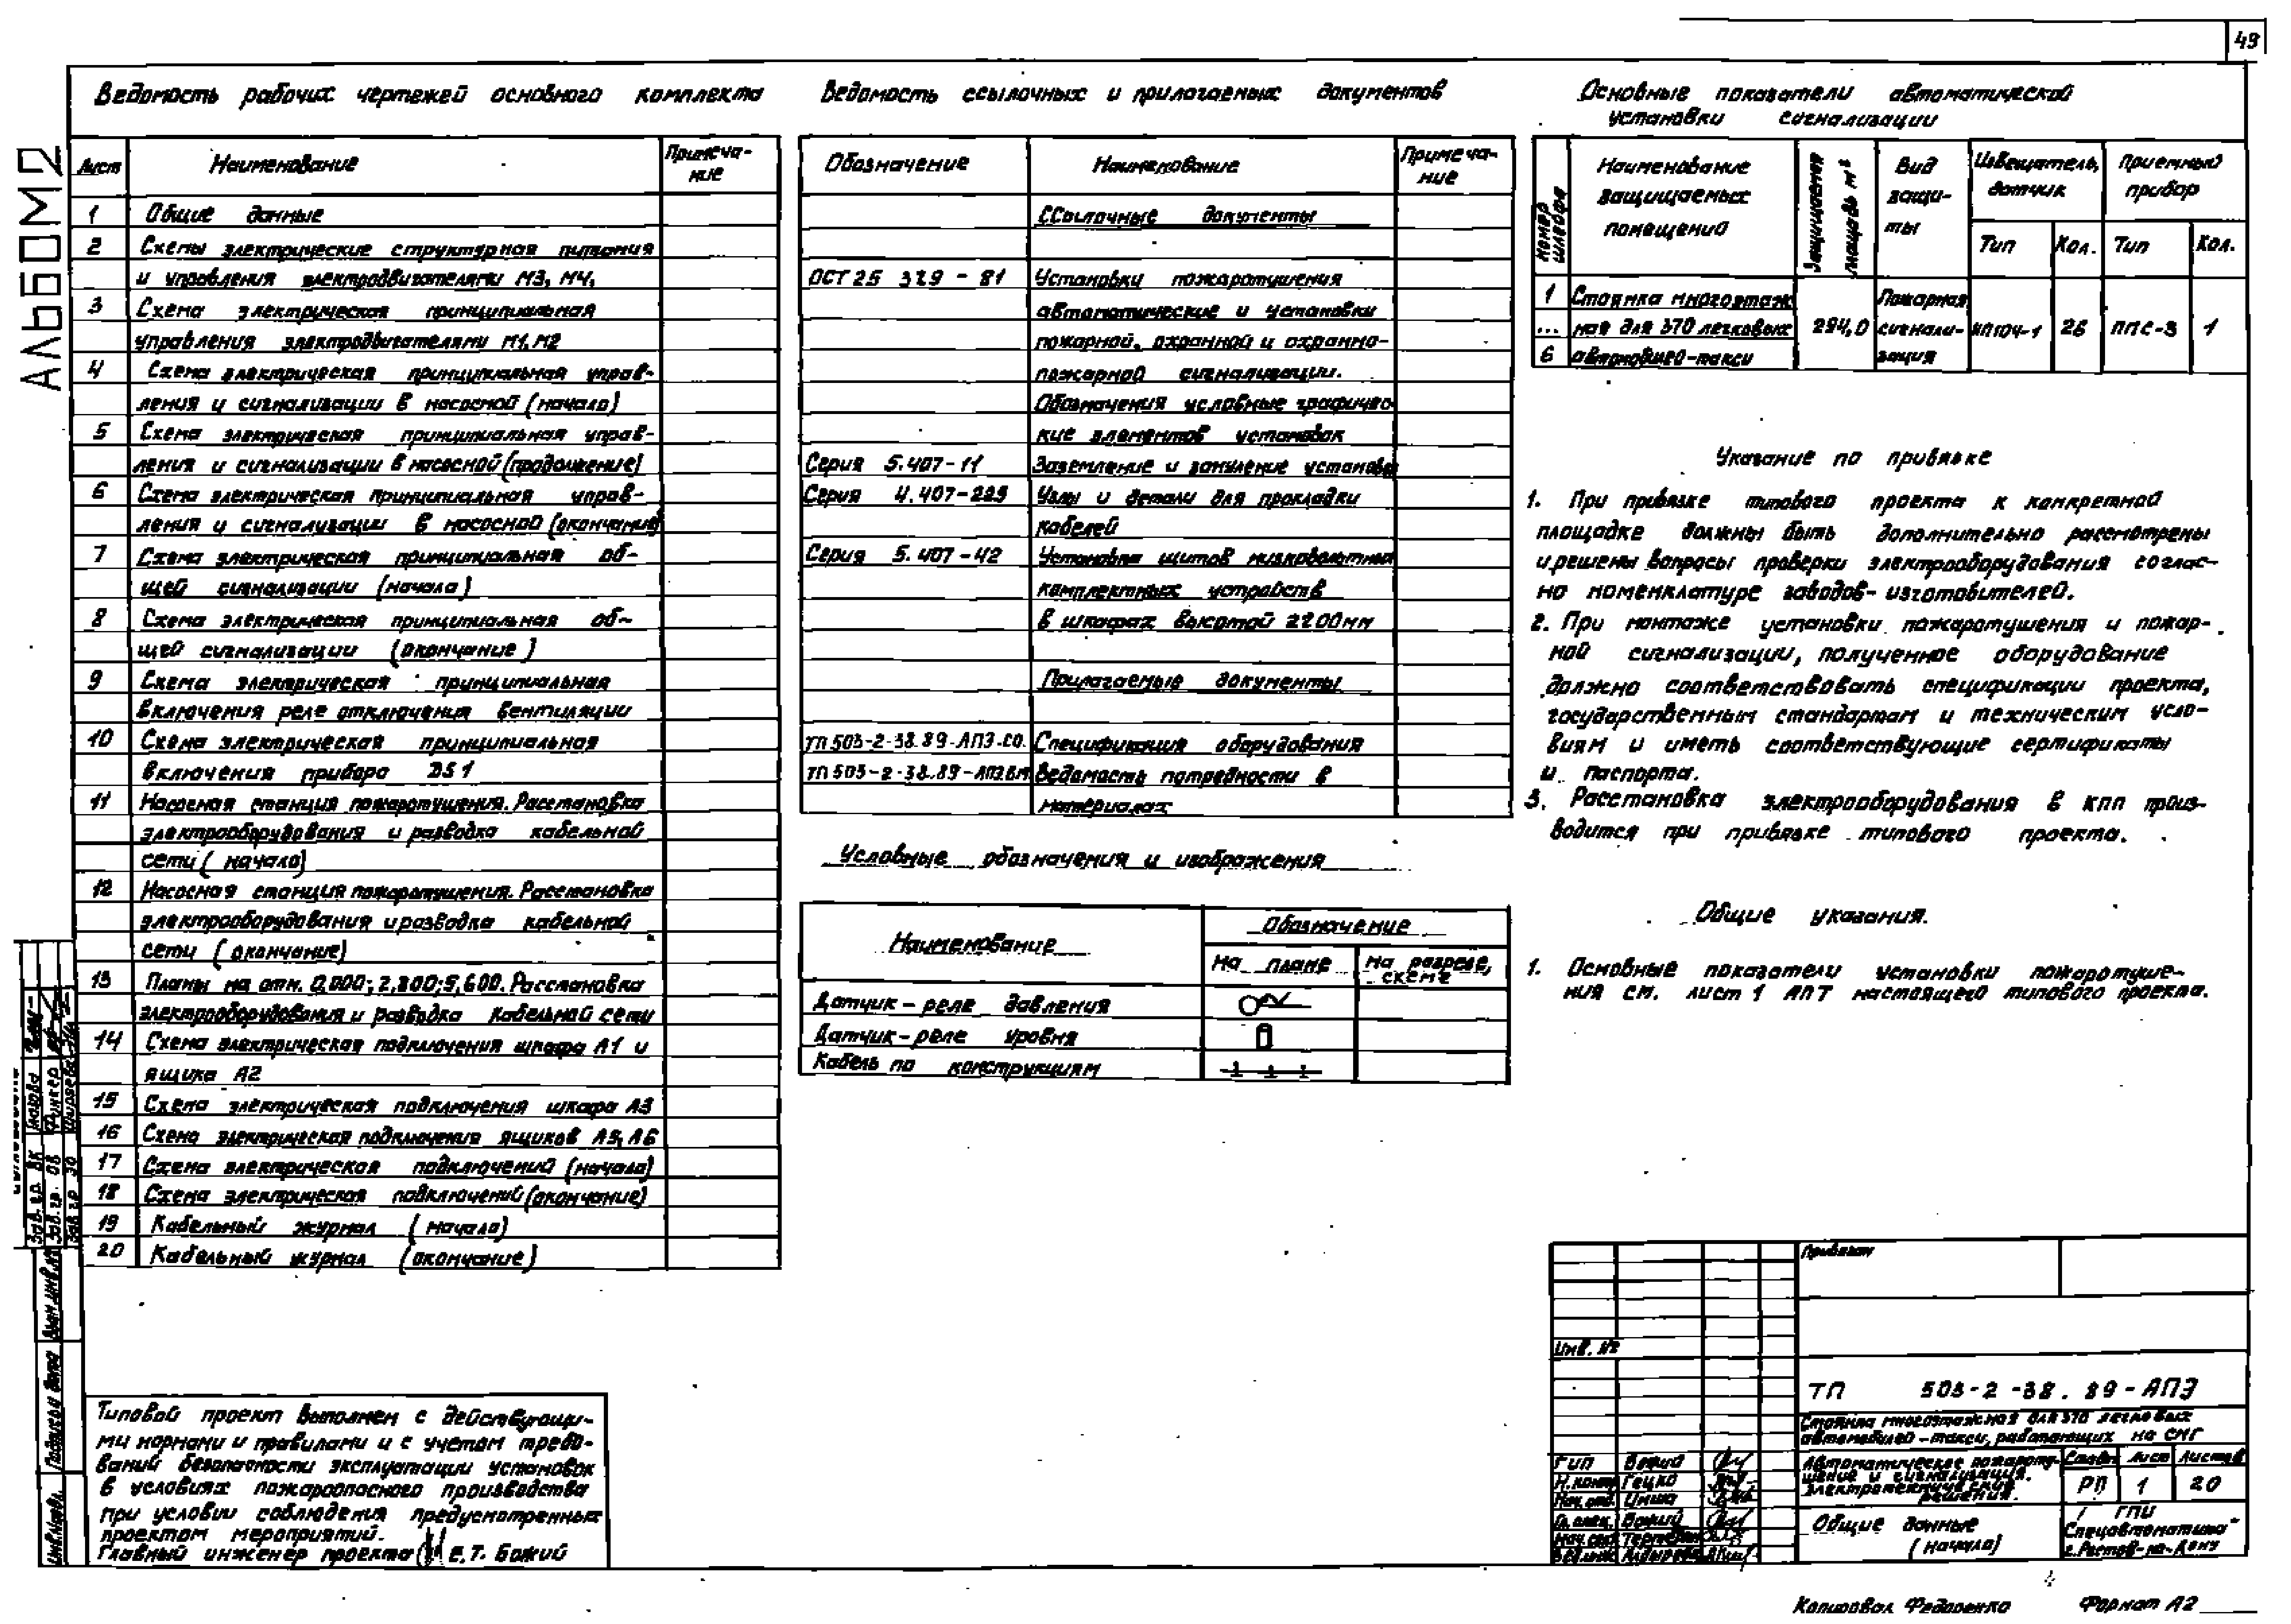 49
АЛЬБОМ 2
Ведомость рабочих чертежей основного комплекта
Лист Наименование Примеча-
ние
1 Общие данные
2 Схемы электрические структурная питания
и управления электродвигателями М3, М4,
3 Схема электрическая принципиальная
управления электродвигателями М1, М2
4 Схема электрическая принципиальная управ-
ления и сигнализации в насосной (начало)
5 Схема электрическая принципиальная управ-
ления и сигнализации в насосной (продолжение)
6 Схема электрическая принципиальная управ-
ления и сигнализации в насосной (окончание)
7 Схема электрическая принципиальная об-
щей сигнализации (начало)
8 Схема электрическая принципиальная об-
щей сигнализации (окончание)
9 Схема электрическая принципиальная
включения реле отключения вентиляции
10 Схема электрическая принципиальная
включения прибора DS1
11 Насосная станция пожаротушения. Расстановка
электрооборудования и разводка кабельной
сети (начало)
12 Насосная станция пожаротушения. Расстановка
электрооборудования и разводка кабельной
сети (окончание)
13 Планы на отм. 0,000; 2,800; 5,600. Расстановка
электрооборудования и разводка кабельной сети
14 Схема электрическая подключения шкафа А1 и
ящика А2
15 Схема электрическая подключения шкафа А3
16 Схема электрическая подключения ящиков А5, А6
17 Схема электрическая подключений (начало)
18 Схема электрическая подключений (окончание)
19 Кабельный журнал (начало)
20 Кабельный журнал (окончание)
Типовой проект выполнен с действующи-
ми нормами и правилами и с учетом требо-
ваний безопасности эксплуатации установок
в условиях пожароопасного производства
при условии соблюдения предусмотренных
проектом мероприятий.
Главный инженер проекта Е.Т. Божий
Ведомость ссылочных и прилагаемых документов
Обозначение Наименование Примеча-
ние
Ссылочные документы
ОСТ 25 329-81 Установки пожаротушения
автоматические и установки
пожарной, охранной и охранно-
пожарной сигнализации.
Обозначения условные графичес
кие элементов установок
Серия 5.407-11 Заземление и зануление установок
Серия 4.407-225 Узлы и детали для прокладки
кабелей
Серия 5.407-42 Установка щитов низковольтных
комплектных устройств
в шкафах высотой 2200мм
Прилагаемые документы
ТП 503-2-38.89-АПЭ.СО Спецификация оборудования
ТП 503-2-38.89-АПЭ.ВМ Ведомость потребности в
материалах
Условные обозначения и изображения
Наименование Обозначение
На плане На разрезе,
схеме
Датчик-реле давления
Датчик-реле уровня
Кабель по конструкциям
Основные показатели автоматической
установки сигнализации
Номер
шлейфа
Наименование
защищаемых
помещений
Защищаемая
площадь м²
Вид
защи-
ты
Извещатель,
датчик
Приемный
прибор
Тип Кол. Тип Кол.
1 Стоянка многоэтаж Пожарная
... ная для 370 легковых 294,0 сигнали- ИП104-1 26 ППС-3 1
6 автомобилей-такси зация
Указание по привязке
1. При привязке типового проекта к конкретной
площадке должны быть дополнительно рассмотрены
и решены вопросы проверки электрооборудования соглас-
но номенклатуре заводов-изготовителей.
2. При монтаже установки пожаротушения и пожар-
ной сигнализации, полученное оборудование
должно соответствовать спецификации проекта,
государственным стандартам и техническим усло-
виям и иметь соответствующие сертификаты
и паспорта.
3. Расстановка электрооборудования в КПП произ-
водится при привязке типового проекта.
Общие указания.
1. Основные показатели установки пожаротуше-
ния см. лист 1 АПТ настоящего типового проекта.
Привязан
Инв. №
ТП 503-2-38.89-АПЭ
Стоянка многоэтажная для 370 легковых
автомобилей-такси, работающих на СНГ
ГИП Божий
Н.контр Гецко
Нач.отд.
Гл.спец. Божий
Автоматическое пожароту-
шение и сигнализация.
Электротехнические
решения.
Стадия Лист Листов
РП 1 20
Общие данные
(начало)
ГПИ
Спецавтоматика"
г.Ростов-на-Дону
Зав. гр. ВК
Зав. гр. ОВ
Зав. гр. ЭО
Взам. инв.№
Подпись и дата
Инв.№подл.
Копировал Федоренко Формат А2